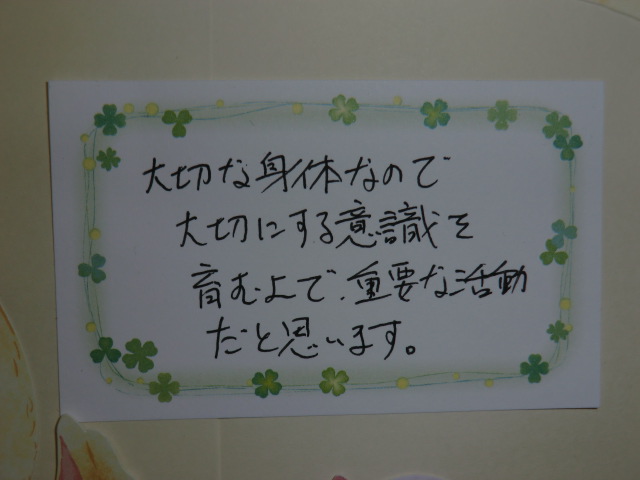 大切な身体なので
大切にする意識を
育む上で、重要な活動
だと思います。